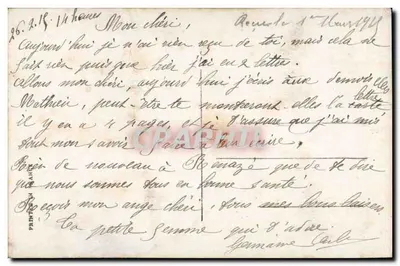 26.2.15 14 heures
1er Mars 1915
Mon chéri,
Aujourd'hui je n'ai rien reçu de toi, mais cela ne
fait rien puisque hier j'ai eu 2 lettres.
Allons mon chéri, aujourd'hui j'écris aux demoiselles
Mathieu, peut-être te montreront elles la lettre
il y en a 4 pages, et je t'assure que j'ai mis
tout mon savoir
Rien de nouveau à Renazé que de te dire
que nous sommes tous en bonne santé.
Reçois mon ange chéri, tous mes bons baisers
Ta petite femme qui t'adore
Germaine